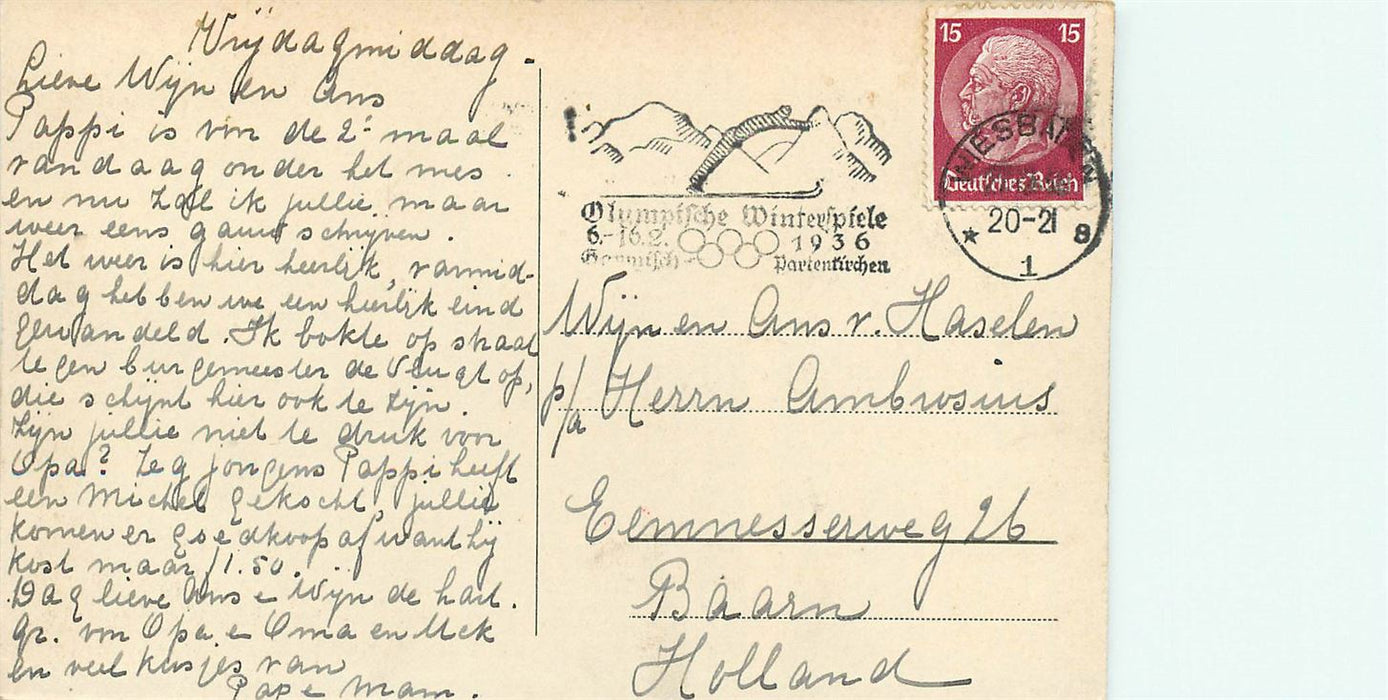 Vrijdagmiddag.
Lieve Wijn en Ans
Pappi is von de 2e maal
vandaag onder het mes
en nu zal ik jullie maar
weer eens gauw schrijven.
Het weer is hier heerlijk, vanmid-
dag hebben we een heerlijk eind
gewandeld. Ik bokte op straat
tegen burgemeester de op,
die schijnt hier ook te zijn.
Zijn jullie niet te druk voor
Opa? Zeg jongens Pappi heeft
een Michel gekocht, jullie
komen er goedkoop af want hij
kost maar f 1.50.
Dag lieve Ans e Wijn de hart.
gr. von Opa e Oma en
en veel kusjes van
Pap e Mam.
15 15
Deutsches Reich
WIESBADEN
20-21
* 1 8
Olympische Winterspiele
6.-16.2. 1936
Garmisch- Partenkirchen
Wijn en Ans v. Haselen
p/a Herrn Ambrosius
Eemnesserweg 26
Baarn
Holland